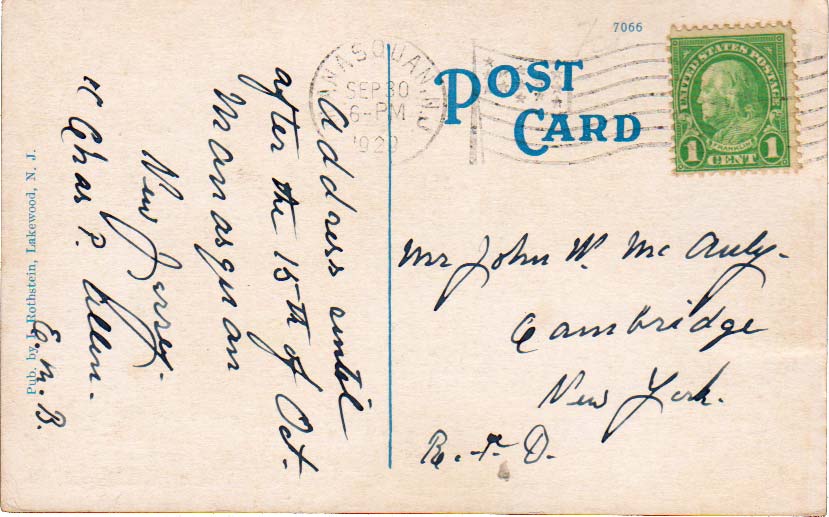 7066
POST
CARD
MANASQUAN, N.J.
SEP 30
6-PM
1929
UNITED STATES POSTAGE
FRANKLIN
1 CENT 1
Address until
after the 15th of Oct.
Manasquan
New Jersey.
Chas P. Allen.
E. M. B.
Mr John W. Mc Auly.
Cambridge
New York.
R. F. D.
Pub. by I. Rothstein, Lakewood, N. J.